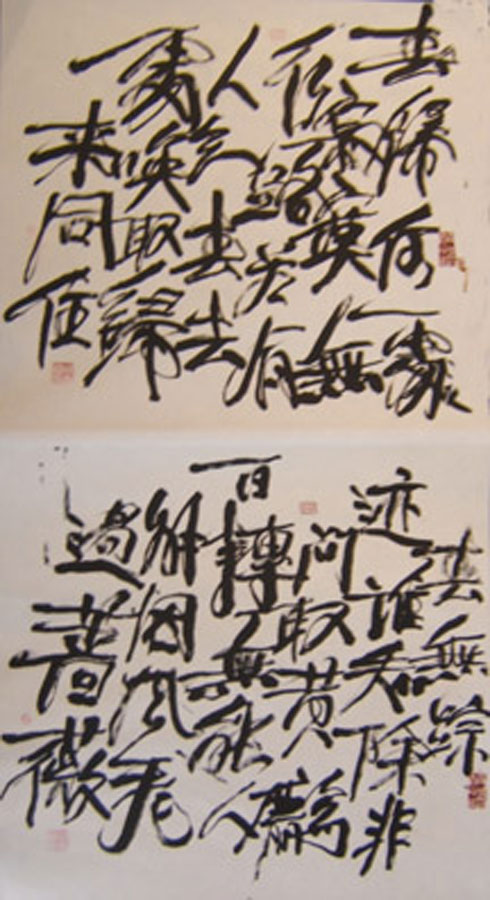 春歸何處
寂寞無
行路若有
人知春去
處喚取歸
来同住
春無踪
迹誰知除非
问取黄鸝
百轉無能人
解因风飛
過薔薇